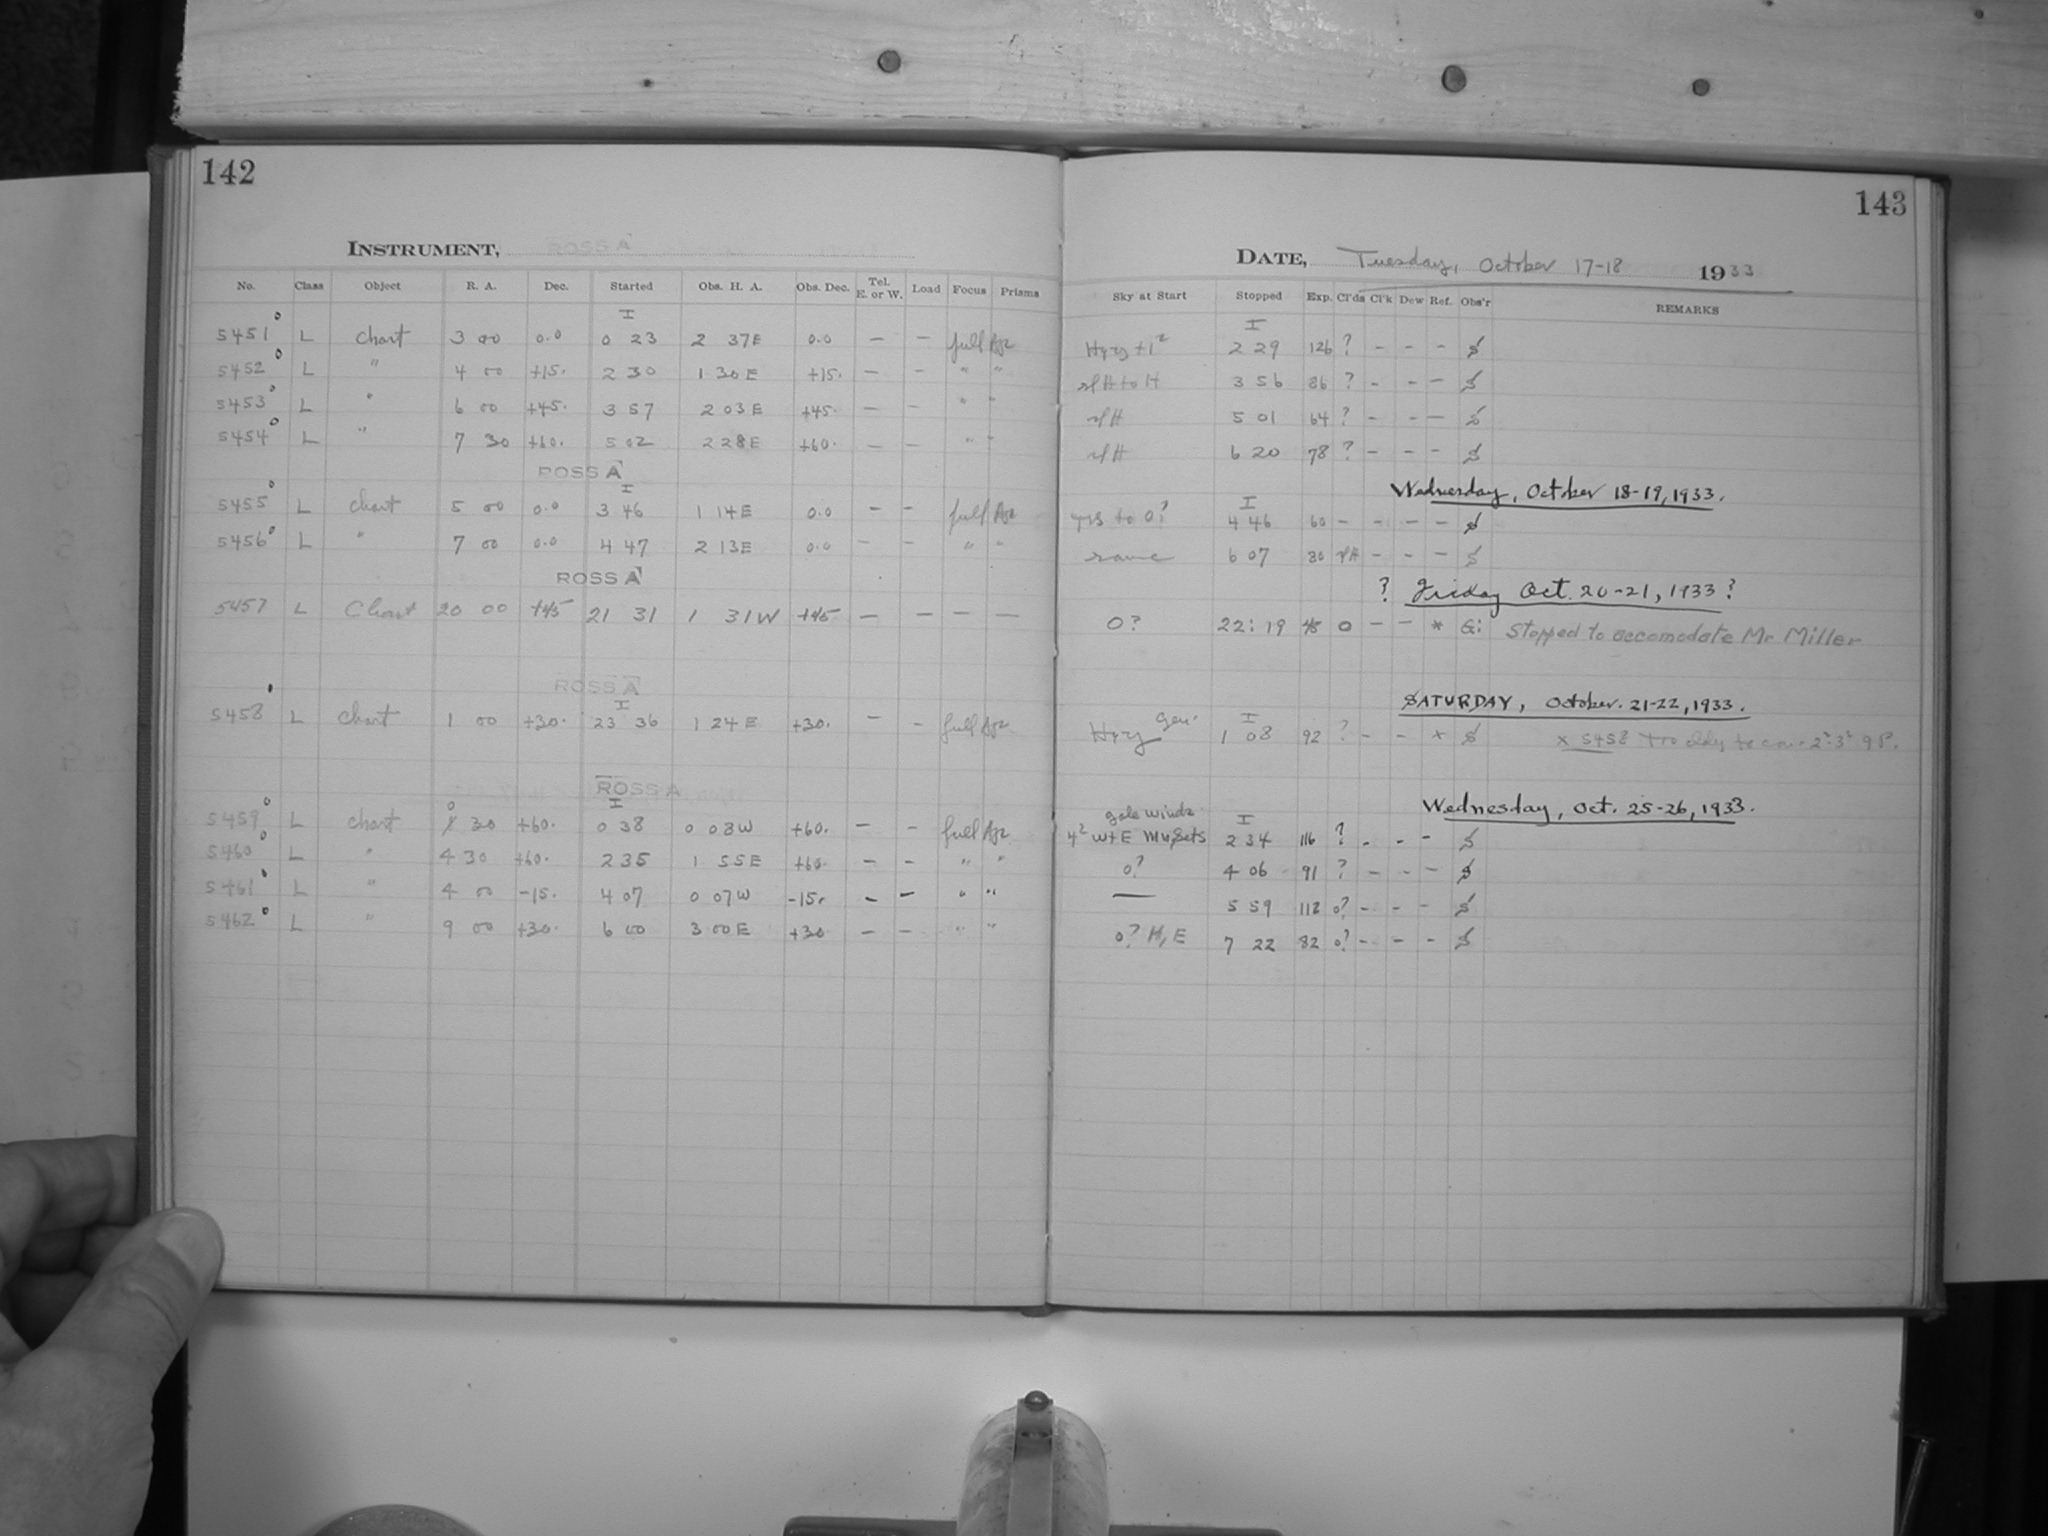 142
INSTRUMENT, ROSS A
No. Class Object R. A. Dec. Started Obs. H. A. Obs. Dec. Tel. E. or W. Load Focus Prisms
I
5451 L Chart 3 00 0.0 0 23 2 37E 0.0 — — full
5452 L " 4 00 +15. 2 30 1 30E +15. — — " "
5453 L " 6 00 +45. 3 57 2 03E +45. — — " "
5454 L " 7 30 +60. 5 02 2 28E +60. — — " "
ROSS A
I
5455 L chart 5 00 0.0 3 46 1 14E 0.0 — — full
5456 L " 7 00 0.0 4 47 2 13E 0.0 — — " "
ROSS A
5457 L Chart 20 00 +45 21 31 1 31W +45 — — — —
ROSS A
I
5458 L chart 1 00 +30. 23 36 1 24E +30. — — full
ROSS A
I
5459 L chart 0 30 +60. 0 38 0 08W +60. — — full
5460 L " 4 30 +60. 2 35 1 55E +60. — — " "
5461 L " 4 00 -15. 4 07 0 07W -15. — — " "
5462 L " 9 00 +30. 6 00 3 00E +30 — — " "
143
DATE, Tuesday, October 17-18 1933
Sky at Start Stopped Exp. Cl'ds Cl'k Dew Ref. Obs'r REMARKS
I
2 29 126 ? – – –
3 56 86 ? – – –
5 01 64 ? – – –
6 20 78 ? – – –
Wednesday, October 18-19, 1933.
I
to 0? 4 46 60 – – – –
same 6 07 80 – – –
? Friday Oct. 20-21, 1933 ?
0? 22:19 48 0 – – * G: Stopped to accomodate Mr Miller
SATURDAY, October. 21-22, 1933.
I
1 08 92 ? – – x x 5458 too
Wednesday, Oct. 25-26, 1933.
gale winds I
W+E 2 34 116 ? – – –
0? 4 06 91 ? – – –
— 5 59 112 0? – – –
0? H, E 7 22 82 0? – – –